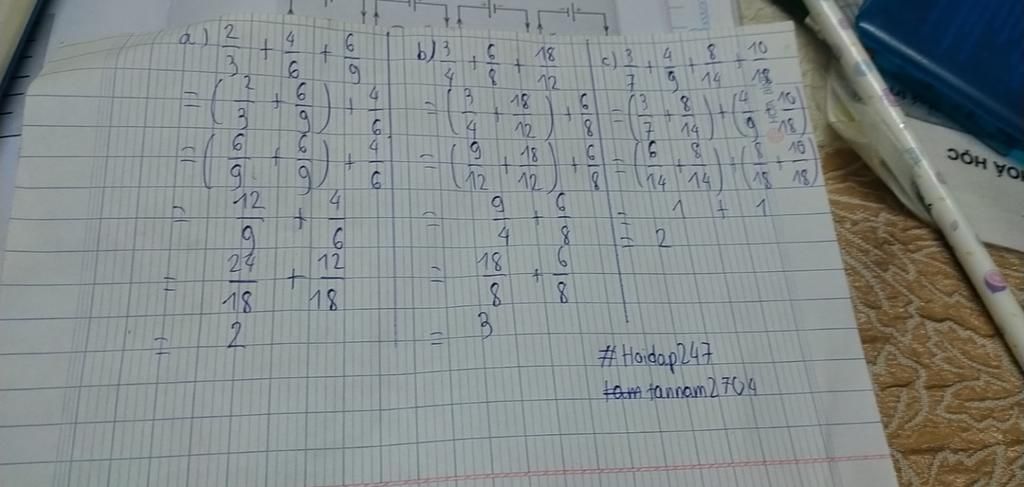 a) 2/3 + 4/6 + 6/9
= (2/3 + 6/9) + 4/6
= (6/9 + 6/9) + 4/6
= 12/9 + 4/6
= 24/18 + 12/18
= 2
b) 3/4 + 6/8 + 18/12
= (3/4 + 18/12) + 6/8
= (9/12 + 18/12) + 6/8
= 9/4 + 6/8
= 18/8 + 6/8
= 3
c) 3/7 + 4/9 + 8/14 + 10/18
= (3/7 + 8/14) + (4/9 + 10/18)
= (6/14 + 8/14) + (8/18 + 10/18)
= 1 + 1
= 2
#Hoidap247
tannam2704
HOÁ HỌC